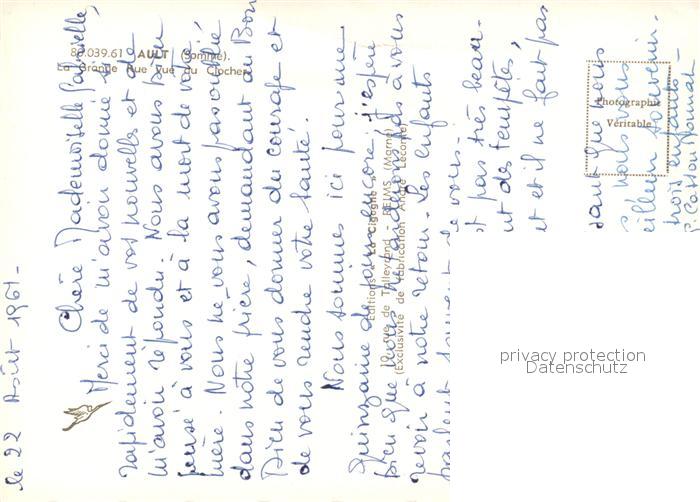 80.039.61 AULT (Somme).
La Grande Rue vue du Clocher
Photographie
Véritable
Editions "La Cigogne"
rue de Talleyrand - REIMS (Marne)
(Exclusivité de fabrication André Leconte)
le 22 Août 1961 -
Chère Mademoiselle
Merci de m'avoir donné si
rapidement de vos nouvelles et de
m'avoir répondu. Nous avons bien
pensé à vous et à la mort de votre
mère. Nous ne vous avons pas oublié
dans notre prière, demandant au Bon
Dieu de vous donner du courage et
de vous rendre votre santé.
Nous sommes ici pour une
quinzaine de jours encore. J'espère
bien que nous ne tarderons pas à vous
revoir à notre retour - Les enfants
parlent souvent de vous -
pas très beau
des tempêtes,
et il ne fait pas
que nous
nous vous
souvenir.
trois enfants -
privacy protection
Datenschutz